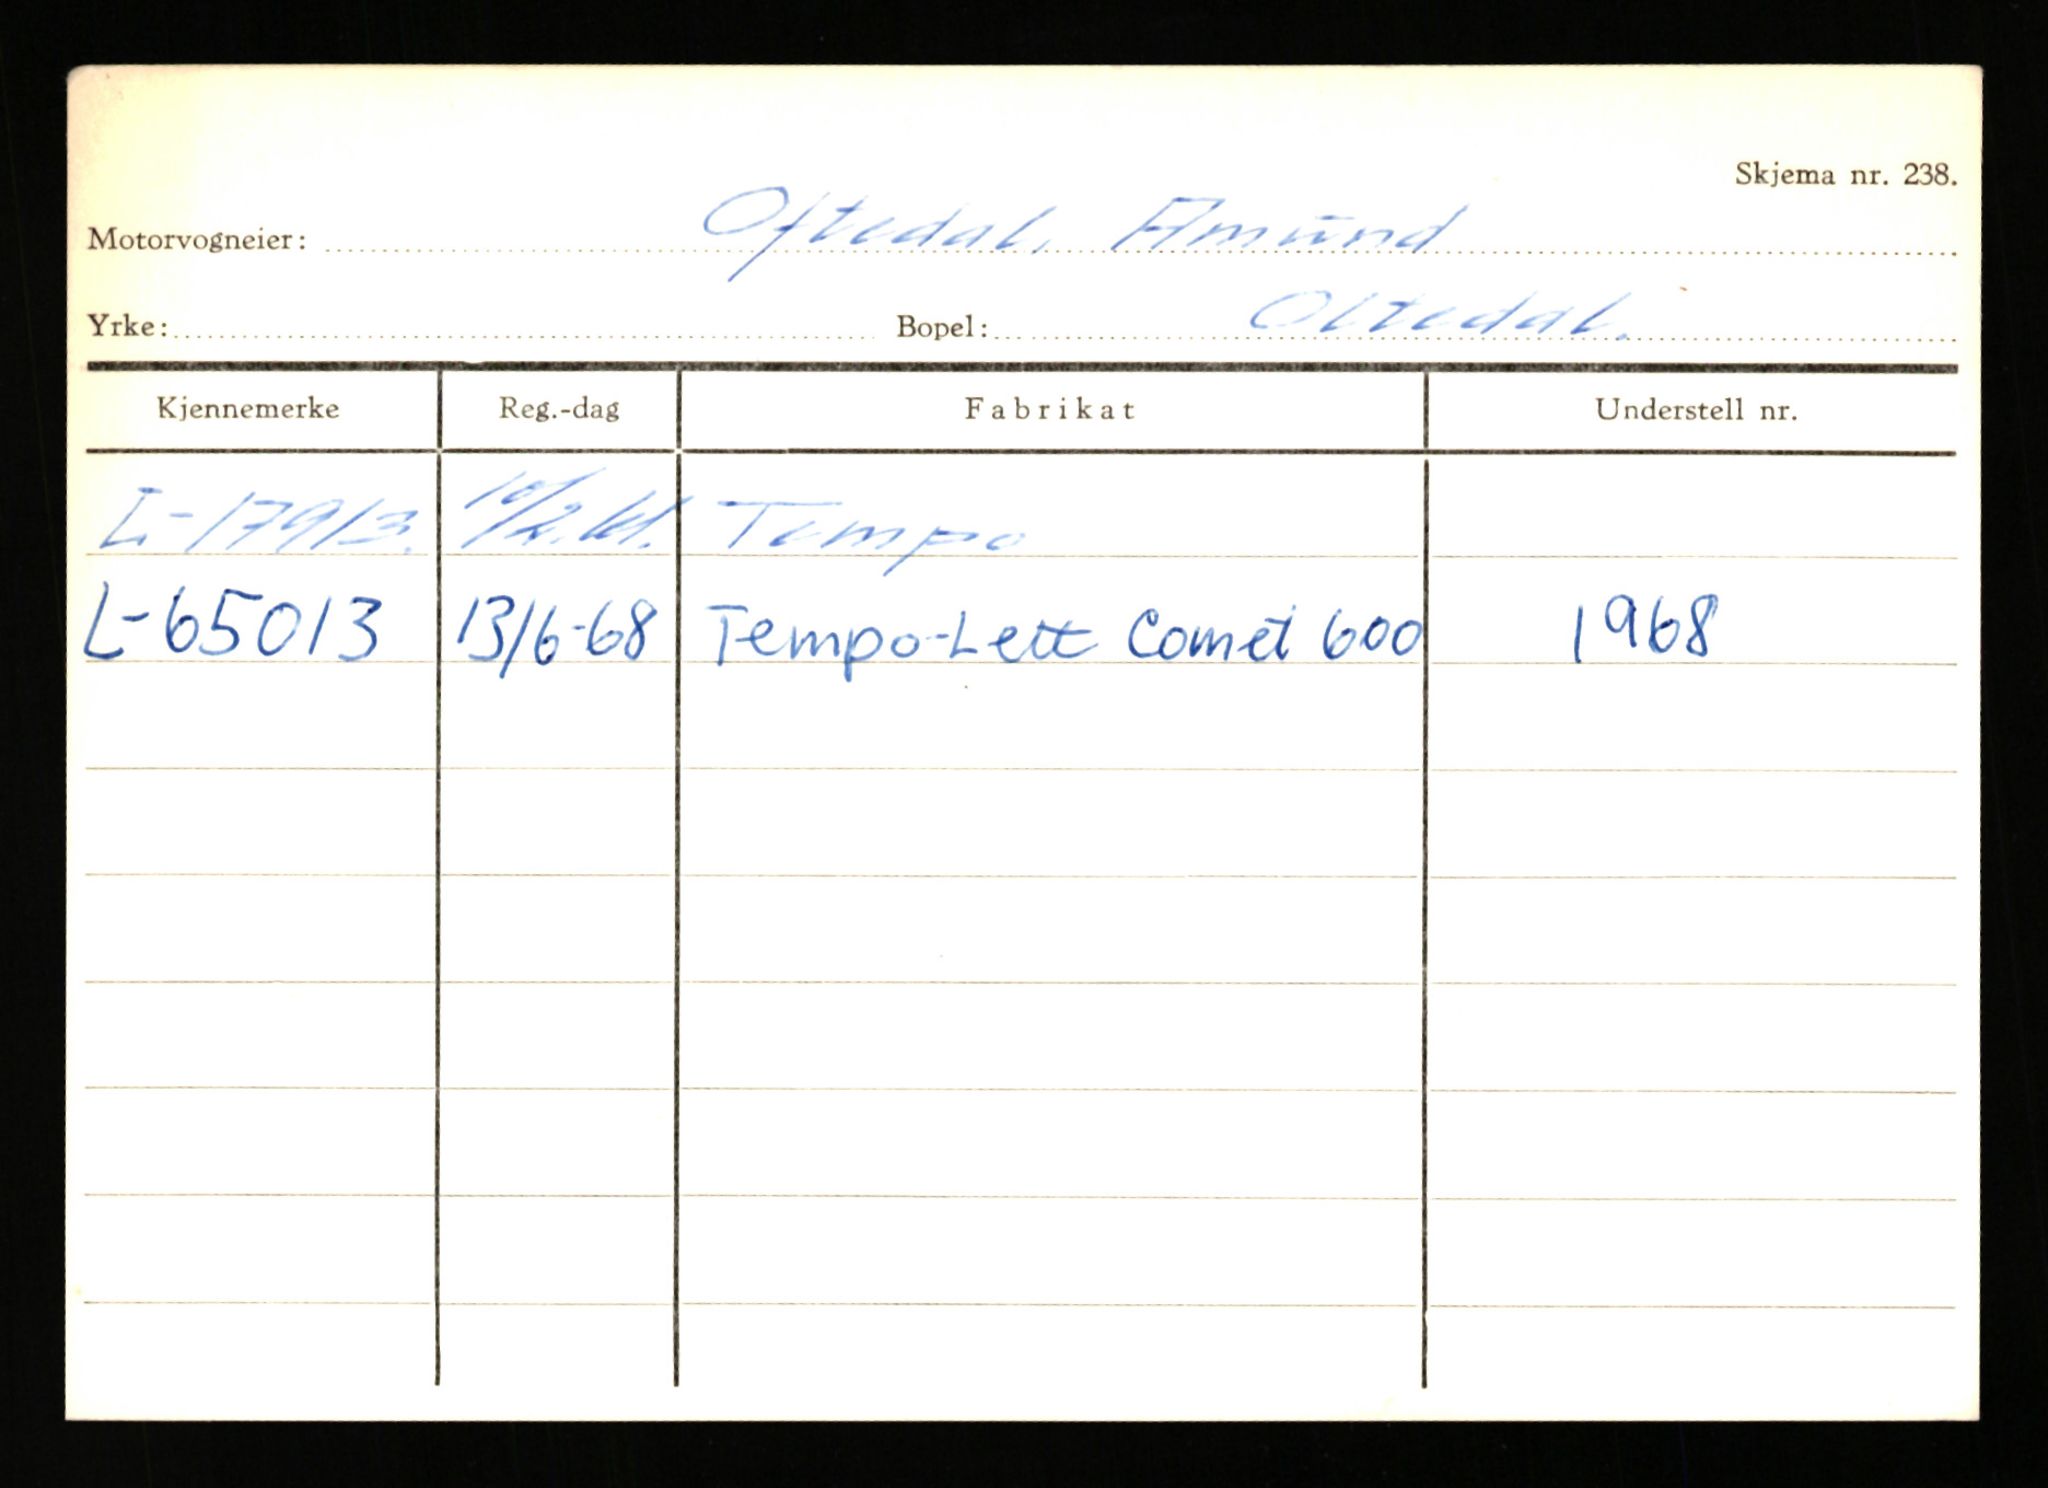 Skjema nr. 238.
Motorvogneier: Oftedal, Amund
Yrke: Bopel: Oltedal.
Kjennemerke Reg.-dag Fabrikat Understell nr.
L-17913. 10/2.61. Tempo
L-65013 13/6-68 Tempo-Lett Comet 600 1968